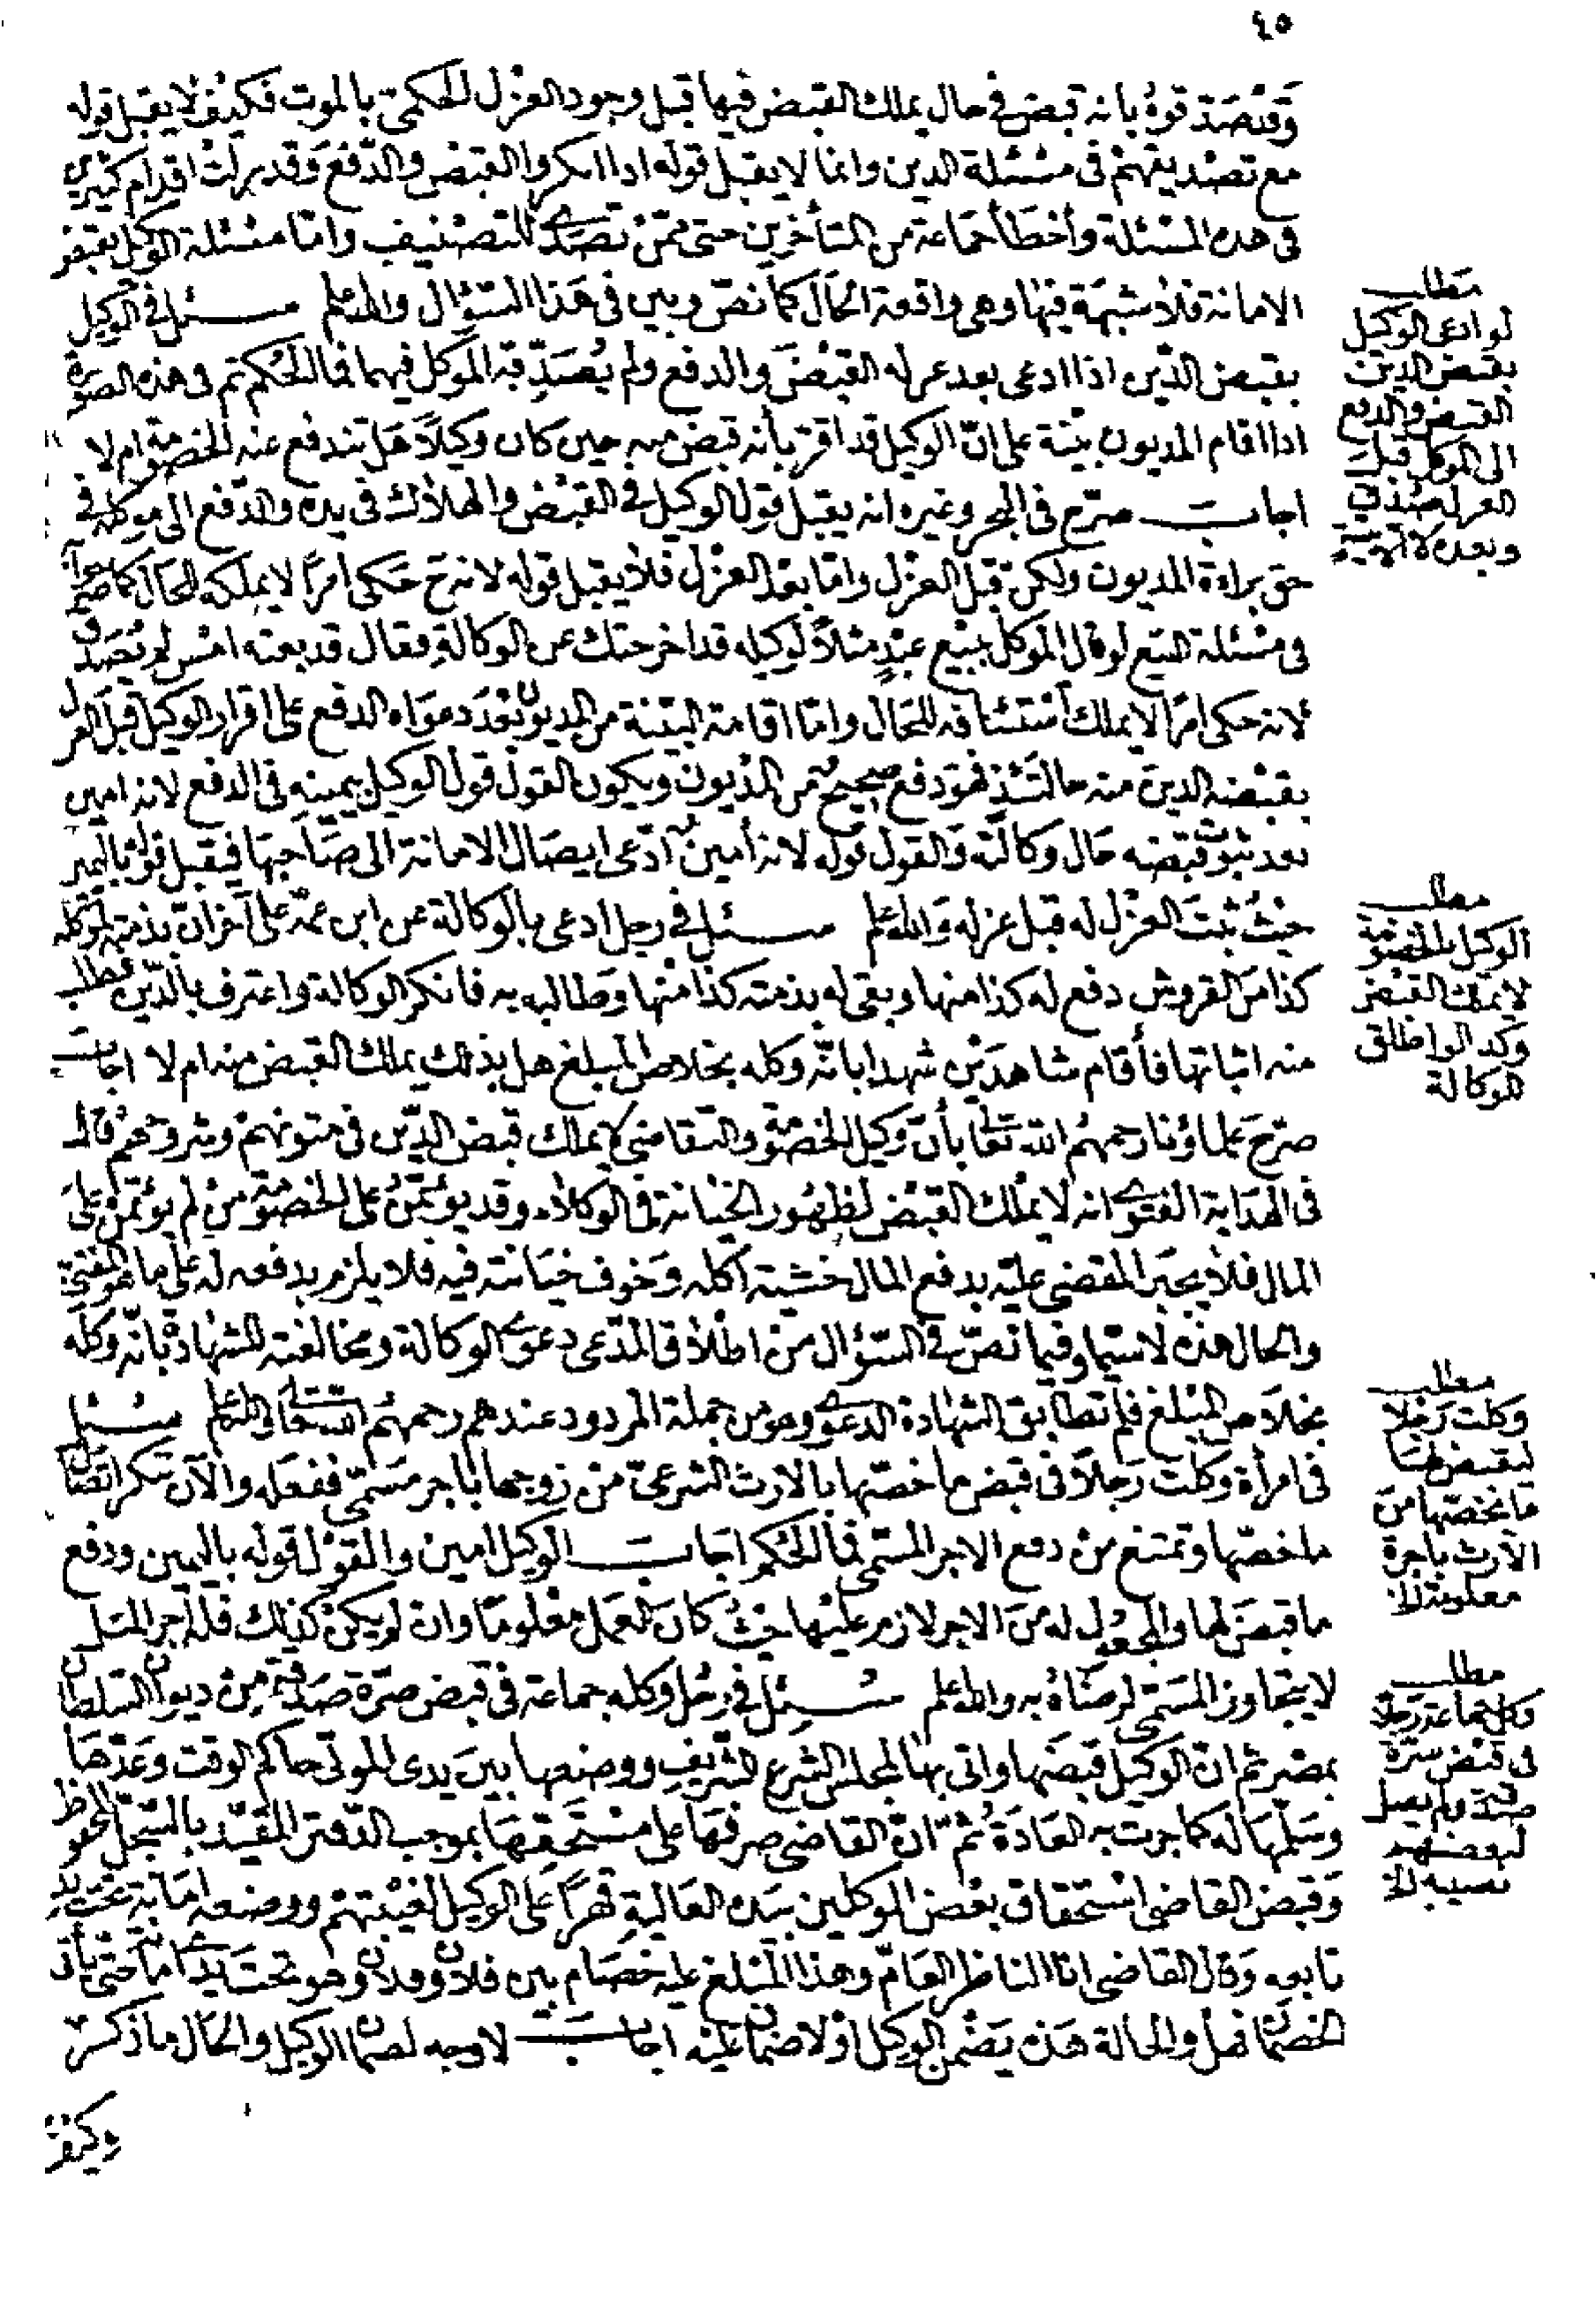 ٤٥
وقد صدقوه بانه قبض في حال يملك القبض فيها قبل وجود العزل الحكمي بالموت فكيف لا يقبل قوله
مع تصديقهم في مسئلة الدين وانما لا يقبل قوله اذا انكروا القبض والدفع وقد زلت اقدام كثيرين
في هذه المسئلة وأخطأ جماعة من المتأخرين حتى ممن تصدى للتصنيف واما مسئلة الوكيل بقبض
الامانة فلا شبهة فيها وهي واقعة الحال كما نص وبين في هذا السؤال والله اعلم سئل في الوكيل
بقبض الدين اذا ادعى بعد عزله القبض والدفع ولم يصدقه الموكل فيهما فما الحكم ثم في هذه الصورة
اذا اقام المديون بينة على ان الوكيل قد اقر بأنه قبض منه حين كان وكيلا هل تندفع عنه الخصومة ام لا
اجاب صرح في البحر وغيره انه يقبل قول الوكيل في القبض والهلاك في يده والدفع الى موكله في
حق براءة المديون ولكن قبل العزل واما بعد العزل فلا يقبل قوله لانه ح حكى امرا لا يملكه للحال كما صرحوا به
في مسئلة البيع لو قال الموكل ببيع عبد مثلا لوكيله قد اخرجتك عن الوكالة فقال قد بعته امس لم يصدق
لانه حكى امرا لا يملك استئنافه للحال واما اقامة البينة من المديون بعد دعواه الدفع على اقرار الوكيل قبل العزل
بقبضه الدين منه حالتئذ فهو دفع صحيح من المديون ويكون القول قول الوكيل بيمينه في الدفع لانه امين
بعد ثبوت قبضه حال وكالته والقول قوله لانه أمين ادعى ايصال الامانة الى صاحبها فيقبل قوله باليمين
حيث ثبت العزل له قبل عزله والله اعلم سئل في رجل ادعى بالوكالة عن ابن عمه على آخر ان بذمته لموكله
كذا من القروش دفع له كذا منها وبقي له بذمته كذا منها وطالبه به فانكر الوكالة واعترف بالدين وطلب
منه اثباتها فأقام شاهدين شهدا بانه وكله بخلاص المبلغ هل بذلك يملك القبض منه ام لا اجاب
صرح علماؤنا رحمهم الله تعالى بأن وكيل الخصومة والتقاضي لا يملك قبض الدين في متونهم وشروحهم قال
في الهداية الفتوى انه لا يملك القبض لظهور الخيانة في الوكلاء وقد يؤتمن على الخصومة من لم يؤتمن على
المال فلا يجبر المقضي عليه بدفع المال خشية اكله وخوف خيانته فيه فلا يلزم بدفعه له على ما هو المفتى به
والحال هذه لا سيما وفيما نص في السؤال من اطلاق المدعي دعوى الوكالة ومخالفته الشهادة بانه وكله
بخلاص المبلغ فلم تطابق الشهادة الدعوى وهو من جملة المردود عندهم رحمهم الله تعالى والله اعلم سئل
في امرأة وكلت رجلا في قبض ما خصها بالارث الشرعي من زوجها باجر مسمى ففعله والآن تنكر ايصال
ما خصها وتمتنع من دفع الاجر المسمى فما الحكم اجاب الوكيل امين والقول قوله باليمين ودفع
ما قبض لها والمجعول له من الاجر لازم عليها حيث كان العمل معلوما وان لم يكن كذلك فله اجر المثل
لا يتجاوز المسمى لرضاه به والله اعلم سئل في رجل وكله جماعة في قبض صرة صدقة من ديوان السلطان
بمصر ثم ان الوكيل قبضها واتى بها لمجلس الشرع الشريف ووضعها بين يدي المولى حاكم الوقت وعدها
وسلمها له كما جرت به العادة ثم ان القاضي صرفها على مستحقها بموجب الدفتر المقيد بالسجل المحفوظ
وقبض القاضي استحقاق بعض الموكلين بيده العالية قهرا على الوكيل لغيبتهم ووضعه امانة تحت يد
تابعه وقال القاضي انا الناظر العام وهذا المبلغ عليه خصام بين فلان وفلان وهو تحت يد امانته حتى يأتي
الخصمان فهل والحالة هذه يضمن الوكيل اولا ضمان عليه اجاب لا وجه لضمان الوكيل والحال ما ذكر
وكيف
مطلب
لو ادعى الوكيل
بقبض الدين
القبض والدفع
الى الموكل قبل
العزل صدق
وبعده لا
مطلب
الوكيل بالخصومة
لا يملك القبض
وكذا لو اطلق
الوكالة
مطلب
وكلت رجلا
ليقبض لها
ما يخصها من
الارث باجرة
معلومة الخ
مطلب
وكل جماعة رجلا
في قبض صرة
صدقة ولم يصل
لبعضهم
نصيبه الخ